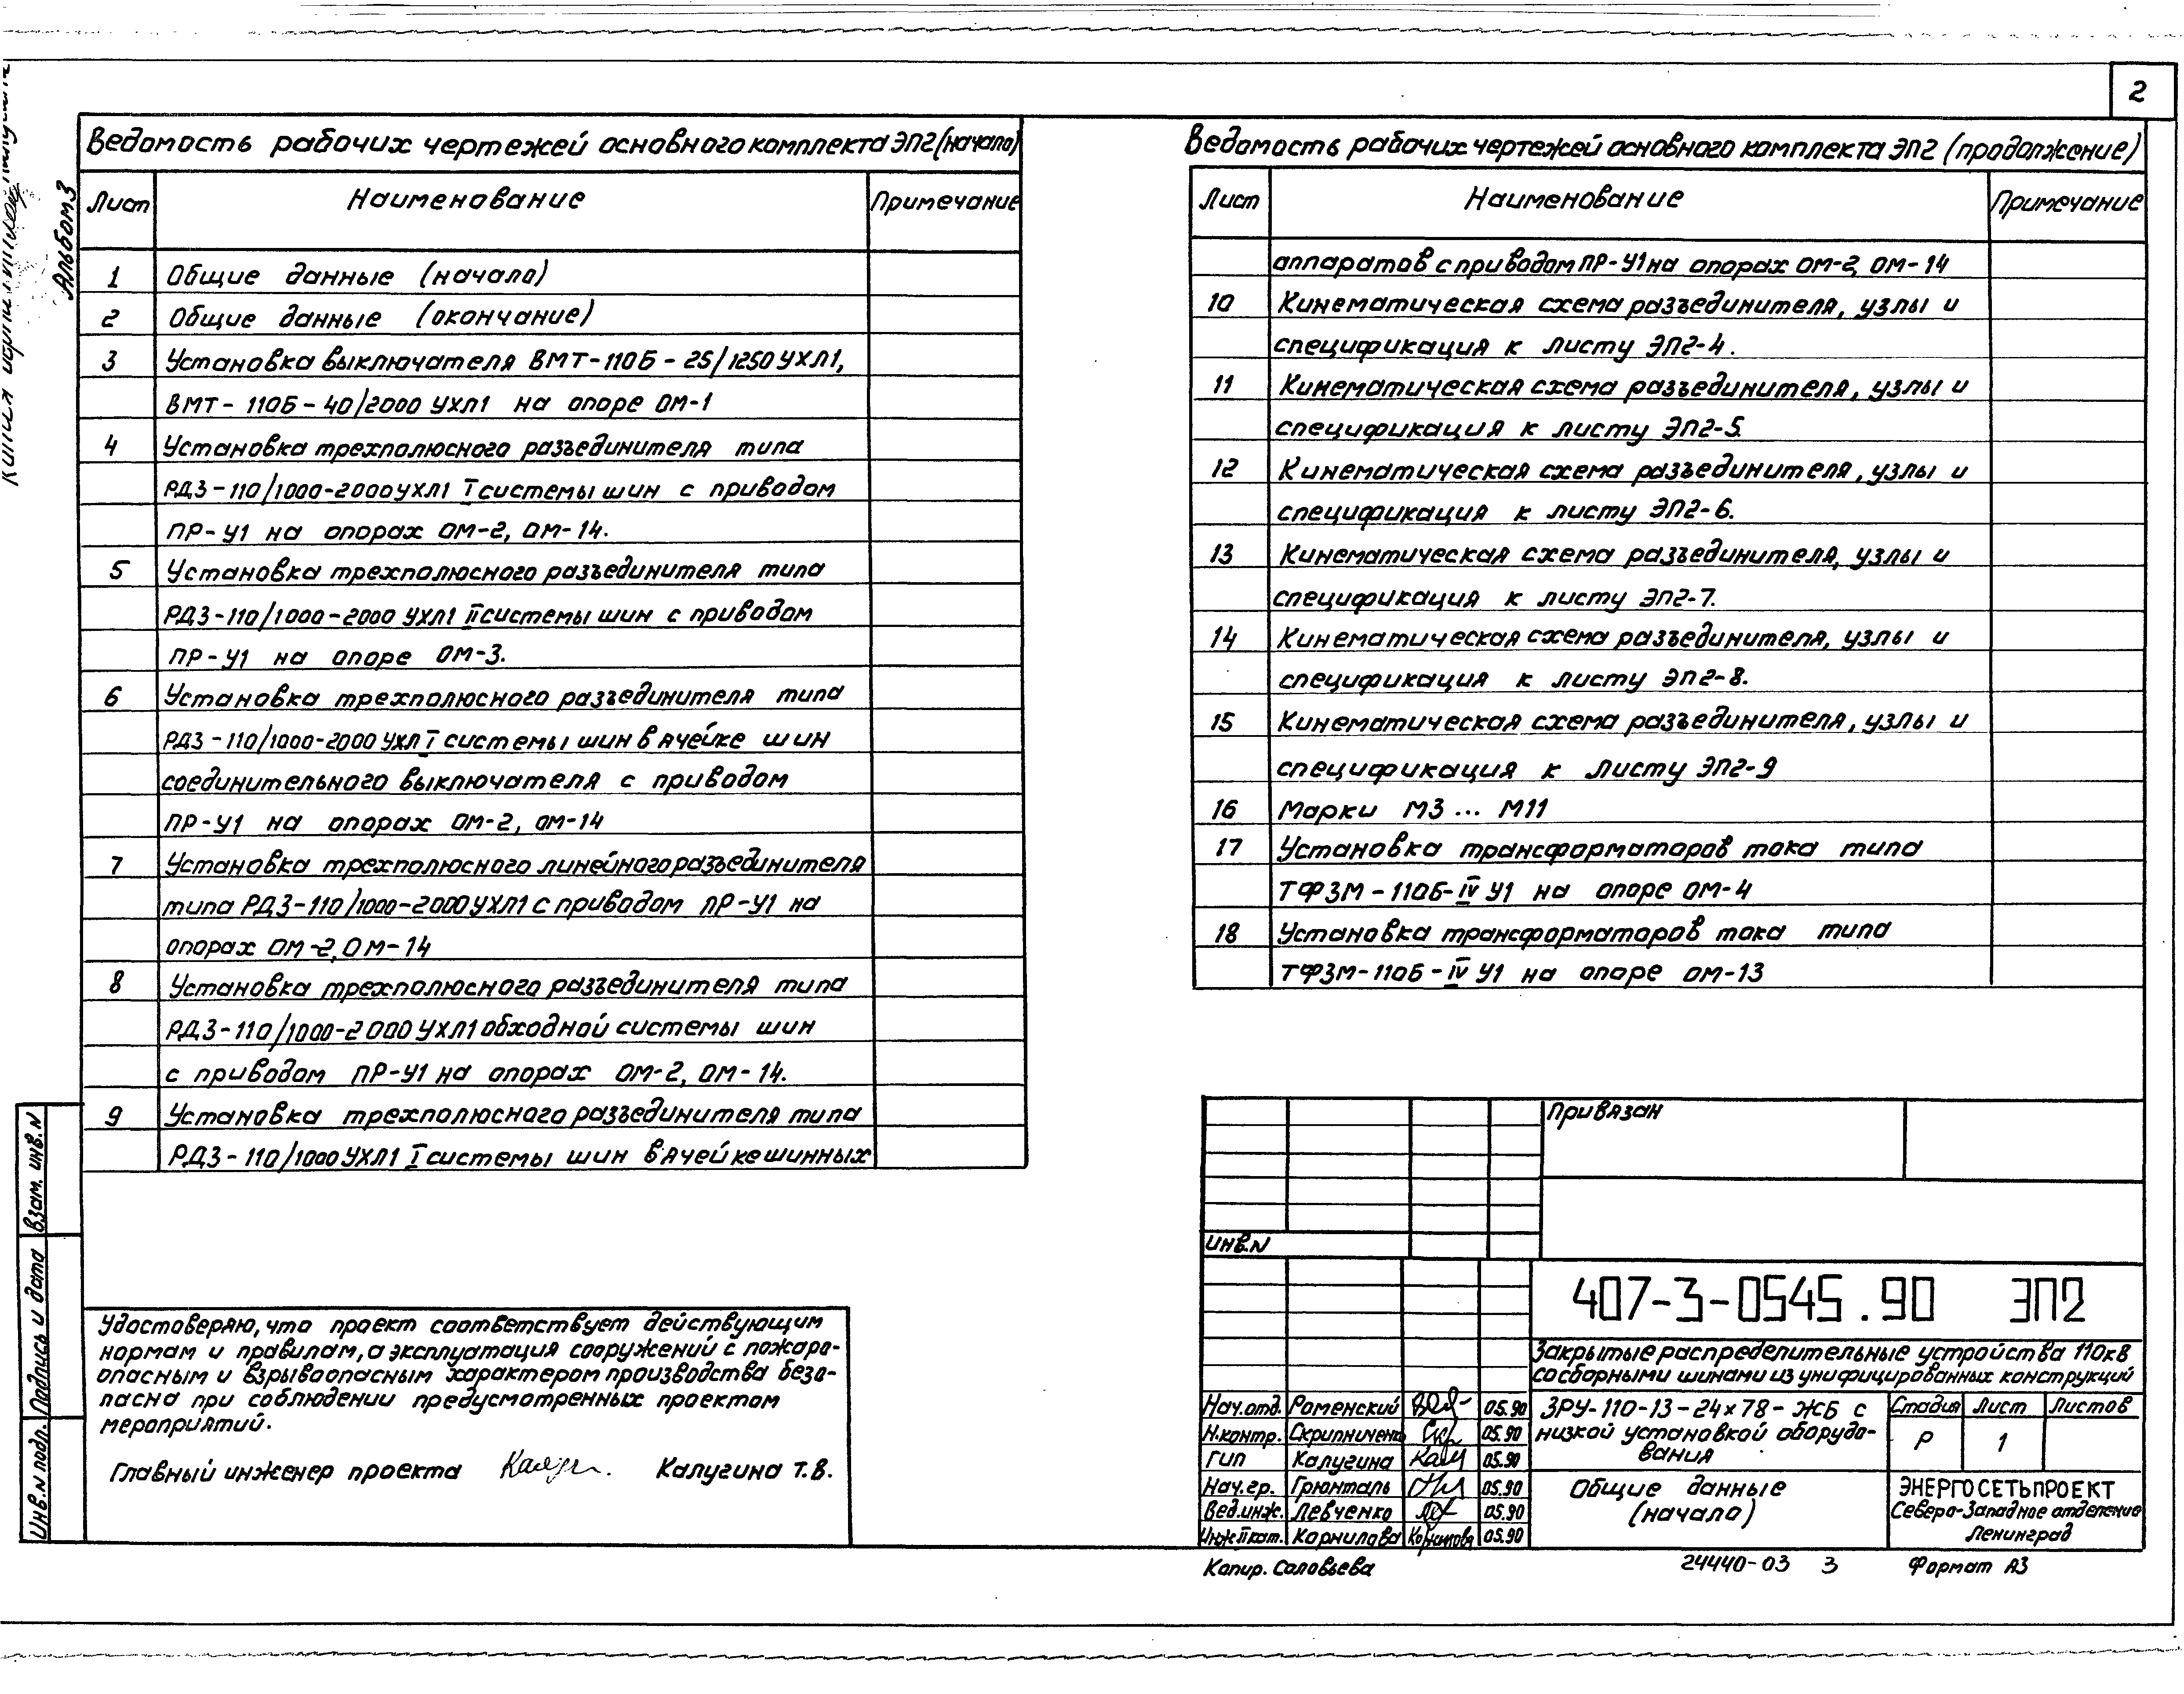 2
Альбом 3
Ведомость рабочих чертежей основного комплекта ЭП2 (начало)
Лист Наименование Примечание
1 Общие данные (начало)
2 Общие данные (окончание)
3 Установка выключателя ВМТ-110Б-25/1250 УХЛ1,
ВМТ-110Б-40/2000 УХЛ1 на опоре ОМ-1
4 Установка трехполюсного разъединителя типа
РДЗ-110/1000-2000 УХЛ1 I системы шин с приводом
ПР-У1 на опорах ОМ-2, ОМ-14.
5 Установка трехполюсного разъединителя типа
РДЗ-110/1000-2000 УХЛ1 II системы шин с приводом
ПР-У1 на опоре ОМ-3.
6 Установка трехполюсного разъединителя типа
РДЗ-110/1000-2000 УХЛ I системы шин в ячейке шин
соединительного выключателя с приводом
ПР-У1 на опорах ОМ-2, ОМ-14
7 Установка трехполюсного линейного разъединителя
типа РДЗ-110/1000-2000 УХЛ1 с приводом ПР-У1 на
опорах ОМ-2, ОМ-14
8 Установка трехполюсного разъединителя типа
РДЗ-110/1000-2000 УХЛ1 обходной системы шин
с приводом ПР-У1 на опорах ОМ-2, ОМ-14.
9 Установка трехполюсного разъединителя типа
РДЗ-110/1000 УХЛ1 I системы шин в ячейке шинных
Ведомость рабочих чертежей основного комплекта ЭП2 (продолжение)
Лист Наименование Примечание
аппаратов с приводом ПР-У1 на опорах ОМ-2, ОМ-14
10 Кинематическая схема разъединителя, узлы и
спецификация к листу ЭП2-4.
11 Кинематическая схема разъединителя, узлы и
спецификация к листу ЭП2-5.
12 Кинематическая схема разъединителя, узлы и
спецификация к листу ЭП2-6.
13 Кинематическая схема разъединителя, узлы и
спецификация к листу ЭП2-7.
14 Кинематическая схема разъединителя, узлы и
спецификация к листу ЭП2-8.
15 Кинематическая схема разъединителя, узлы и
спецификация к листу ЭП2-9
16 Марки М3 ... М11
17 Установка трансформаторов тока типа
ТФЗМ-110Б-IV У1 на опоре ОМ-4
18 Установка трансформаторов тока типа
ТФЗМ-110Б-IV У1 на опоре ОМ-13
Удостоверяю, что проект соответствует действующим
нормам и правилам, а эксплуатация сооружений с пожаро-
опасным и взрывоопасным характером производства безо-
пасна при соблюдении предусмотренных проектом
мероприятий.
Главный инженер проекта Калугина Т.В.
Инв.N подл. Подпись и дата Взам. инв. N
Привязан
Инв.N
407-3-0545.90 ЭП2
Закрытые распределительные устройства 110кВ
со сборными шинами из унифицированных конструкций
Нач.отд. Роменский 05.90
Н.контр. Скрипниченко 05.90
ГИП Калугина 05.90
Нач.гр. Грюнталь 05.90
Вед.инж. Левченко 05.90
Инж.II кат. Корнилова 05.90
ЗРУ-110-13-24х78-ЖБ с
низкой установкой оборудо-
вания
Стадия Лист Листов
Р 1
Общие данные
(начало)
ЭНЕРГОСЕТЬПРОЕКТ
Северо-Западное отделение
Ленинград
Копир. Соловьева
24440-03 3
Формат А3